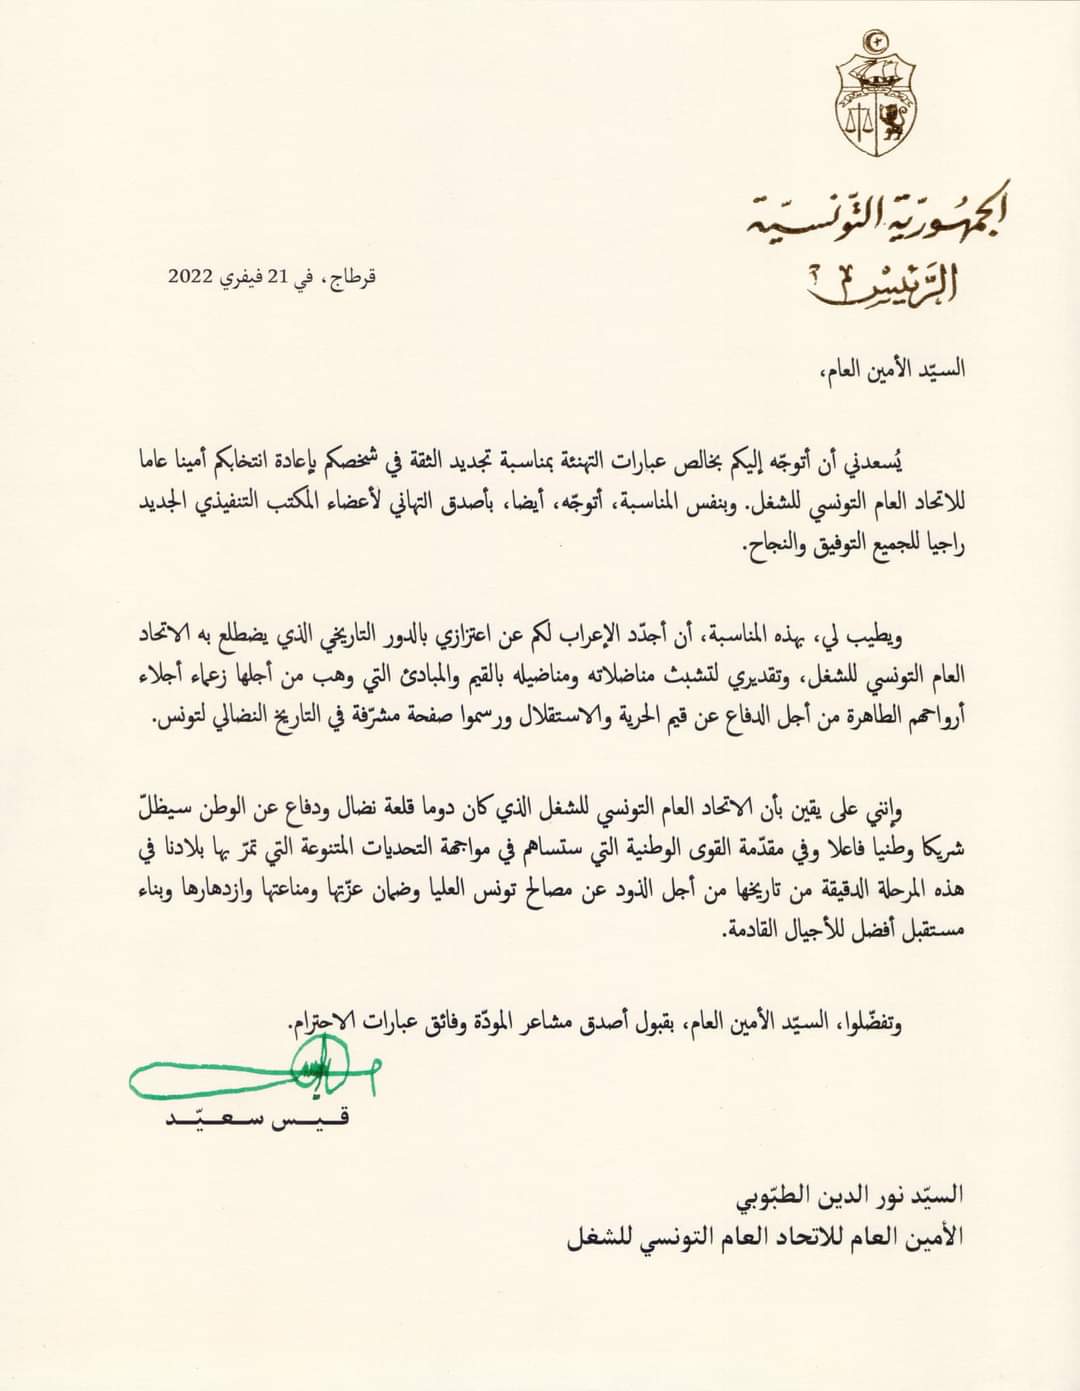 الجمهورية التونسية
الرئيس
قرطاج، في 21 فيفري 2022
السيّد الأمين العام،
يُسعدني أن أتوجّه إليكم بخالص عبارات التهنئة بمناسبة تجديد الثقة في شخصكم بإعادة انتخابكم أمينا عاما
للاتحاد العام التونسي للشغل. وبنفس المناسبة، أتوجّه، أيضا، بأصدق التهاني لأعضاء المكتب التنفيذي الجديد
راجيا للجميع التوفيق والنجاح.
ويطيب لي، بهذه المناسبة، أن أجدّد الإعراب لكم عن اعتزازي بالدور التاريخي الذي يضطلع به الاتحاد
العام التونسي للشغل، وتقديري لتشبث مناضلاته ومناضيله بالقيم والمبادئ التي وهب من أجلها زعماء أجلاء
أرواحهم الطاهرة من أجل الدفاع عن قيم الحرية والاستقلال ورسموا صفحة مشرّفة في التاريخ النضالي لتونس.
وإنني على يقين بأن الاتحاد العام التونسي للشغل الذي كان دوما قلعة نضال ودفاع عن الوطن سيظلّ
شريكا وطنيا فاعلا وفي مقدّمة القوى الوطنية التي ستساهم في مواجهة التحديات المتنوعة التي تمرّ بها بلادنا في
هذه المرحلة الدقيقة من تاريخها من أجل الذود عن مصالح تونس العليا وضمان عزّتها ومناعتها وازدهارها وبناء
مستقبل أفضل للأجيال القادمة.
وتفضّلوا، السيّد الأمين العام، بقبول أصدق مشاعر المودّة وفائق عبارات الاحترام.
قيس سعيّد
السيّد نور الدين الطبّوبي
الأمين العام للاتحاد العام التونسي للشغل